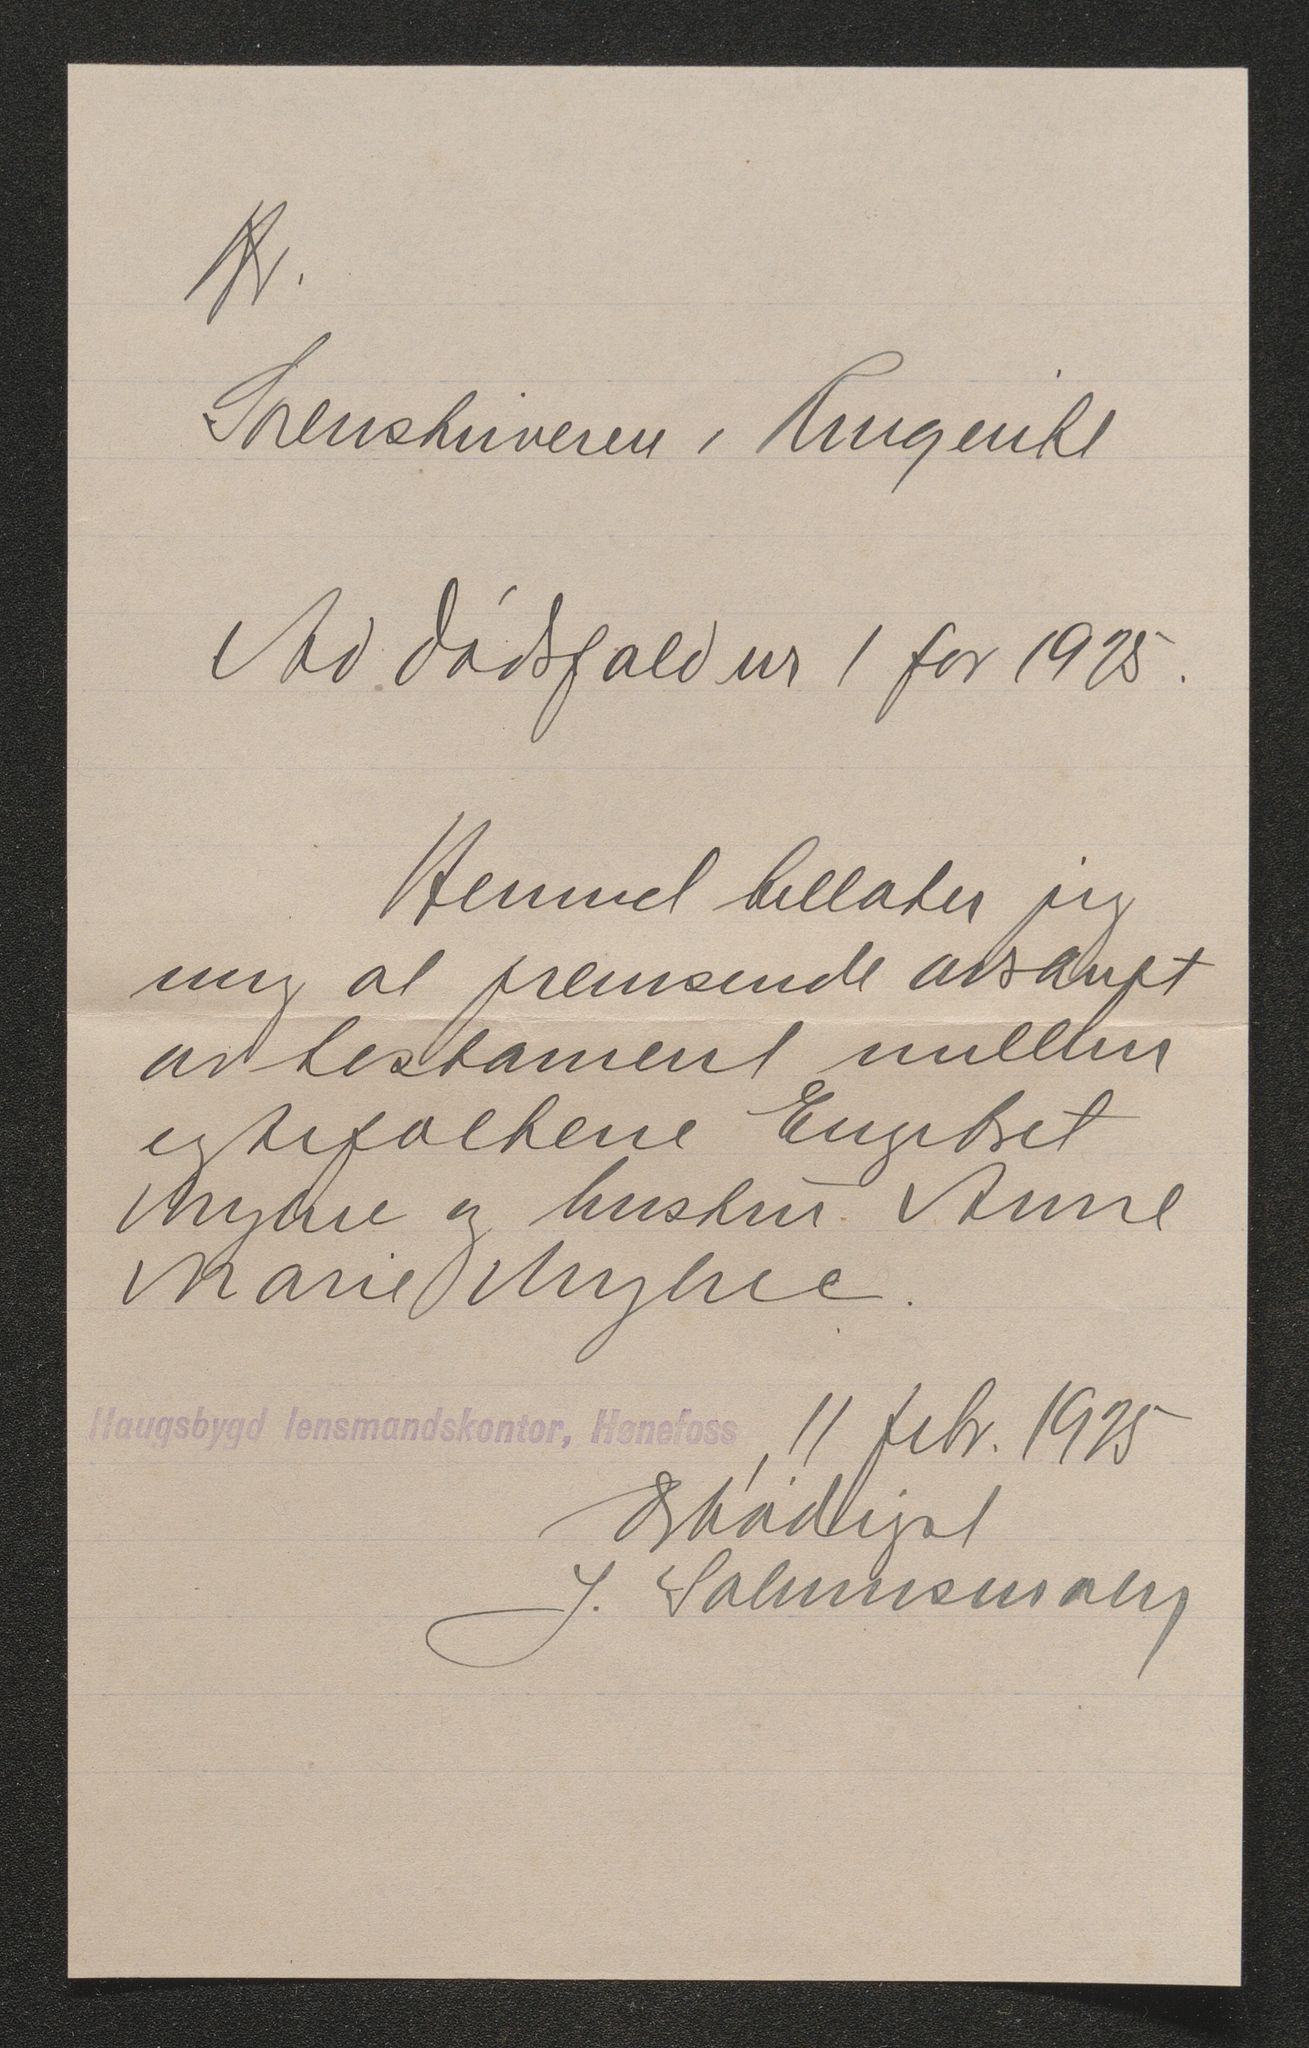 Hr.
Sorenskriveren i Ringerike
Ad dødsfald nr 1 for 1925.
Hermed tillater jeg
mig at fremsende avskrift
av testament mellem
egtefolkene Engebret
Myhre og hustru Anne
Marie Myhre.
Haugsbygd lensmandskontor, Hønefoss, 11 febr. 1925
Ærbødigst
J.